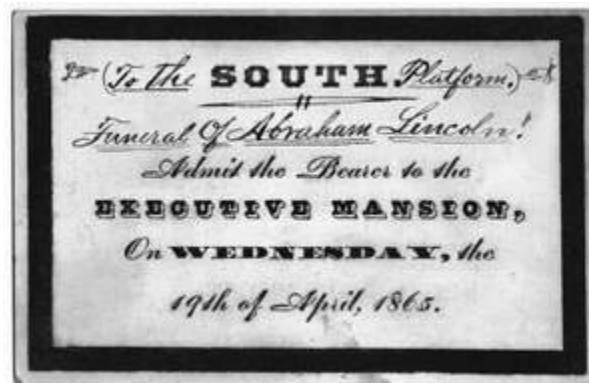 (To the SOUTH Platform.)
Funeral Of Abraham Lincoln!
Admit the Bearer to the
EXECUTIVE MANSION,
On WEDNESDAY, the
19th of April, 1865.